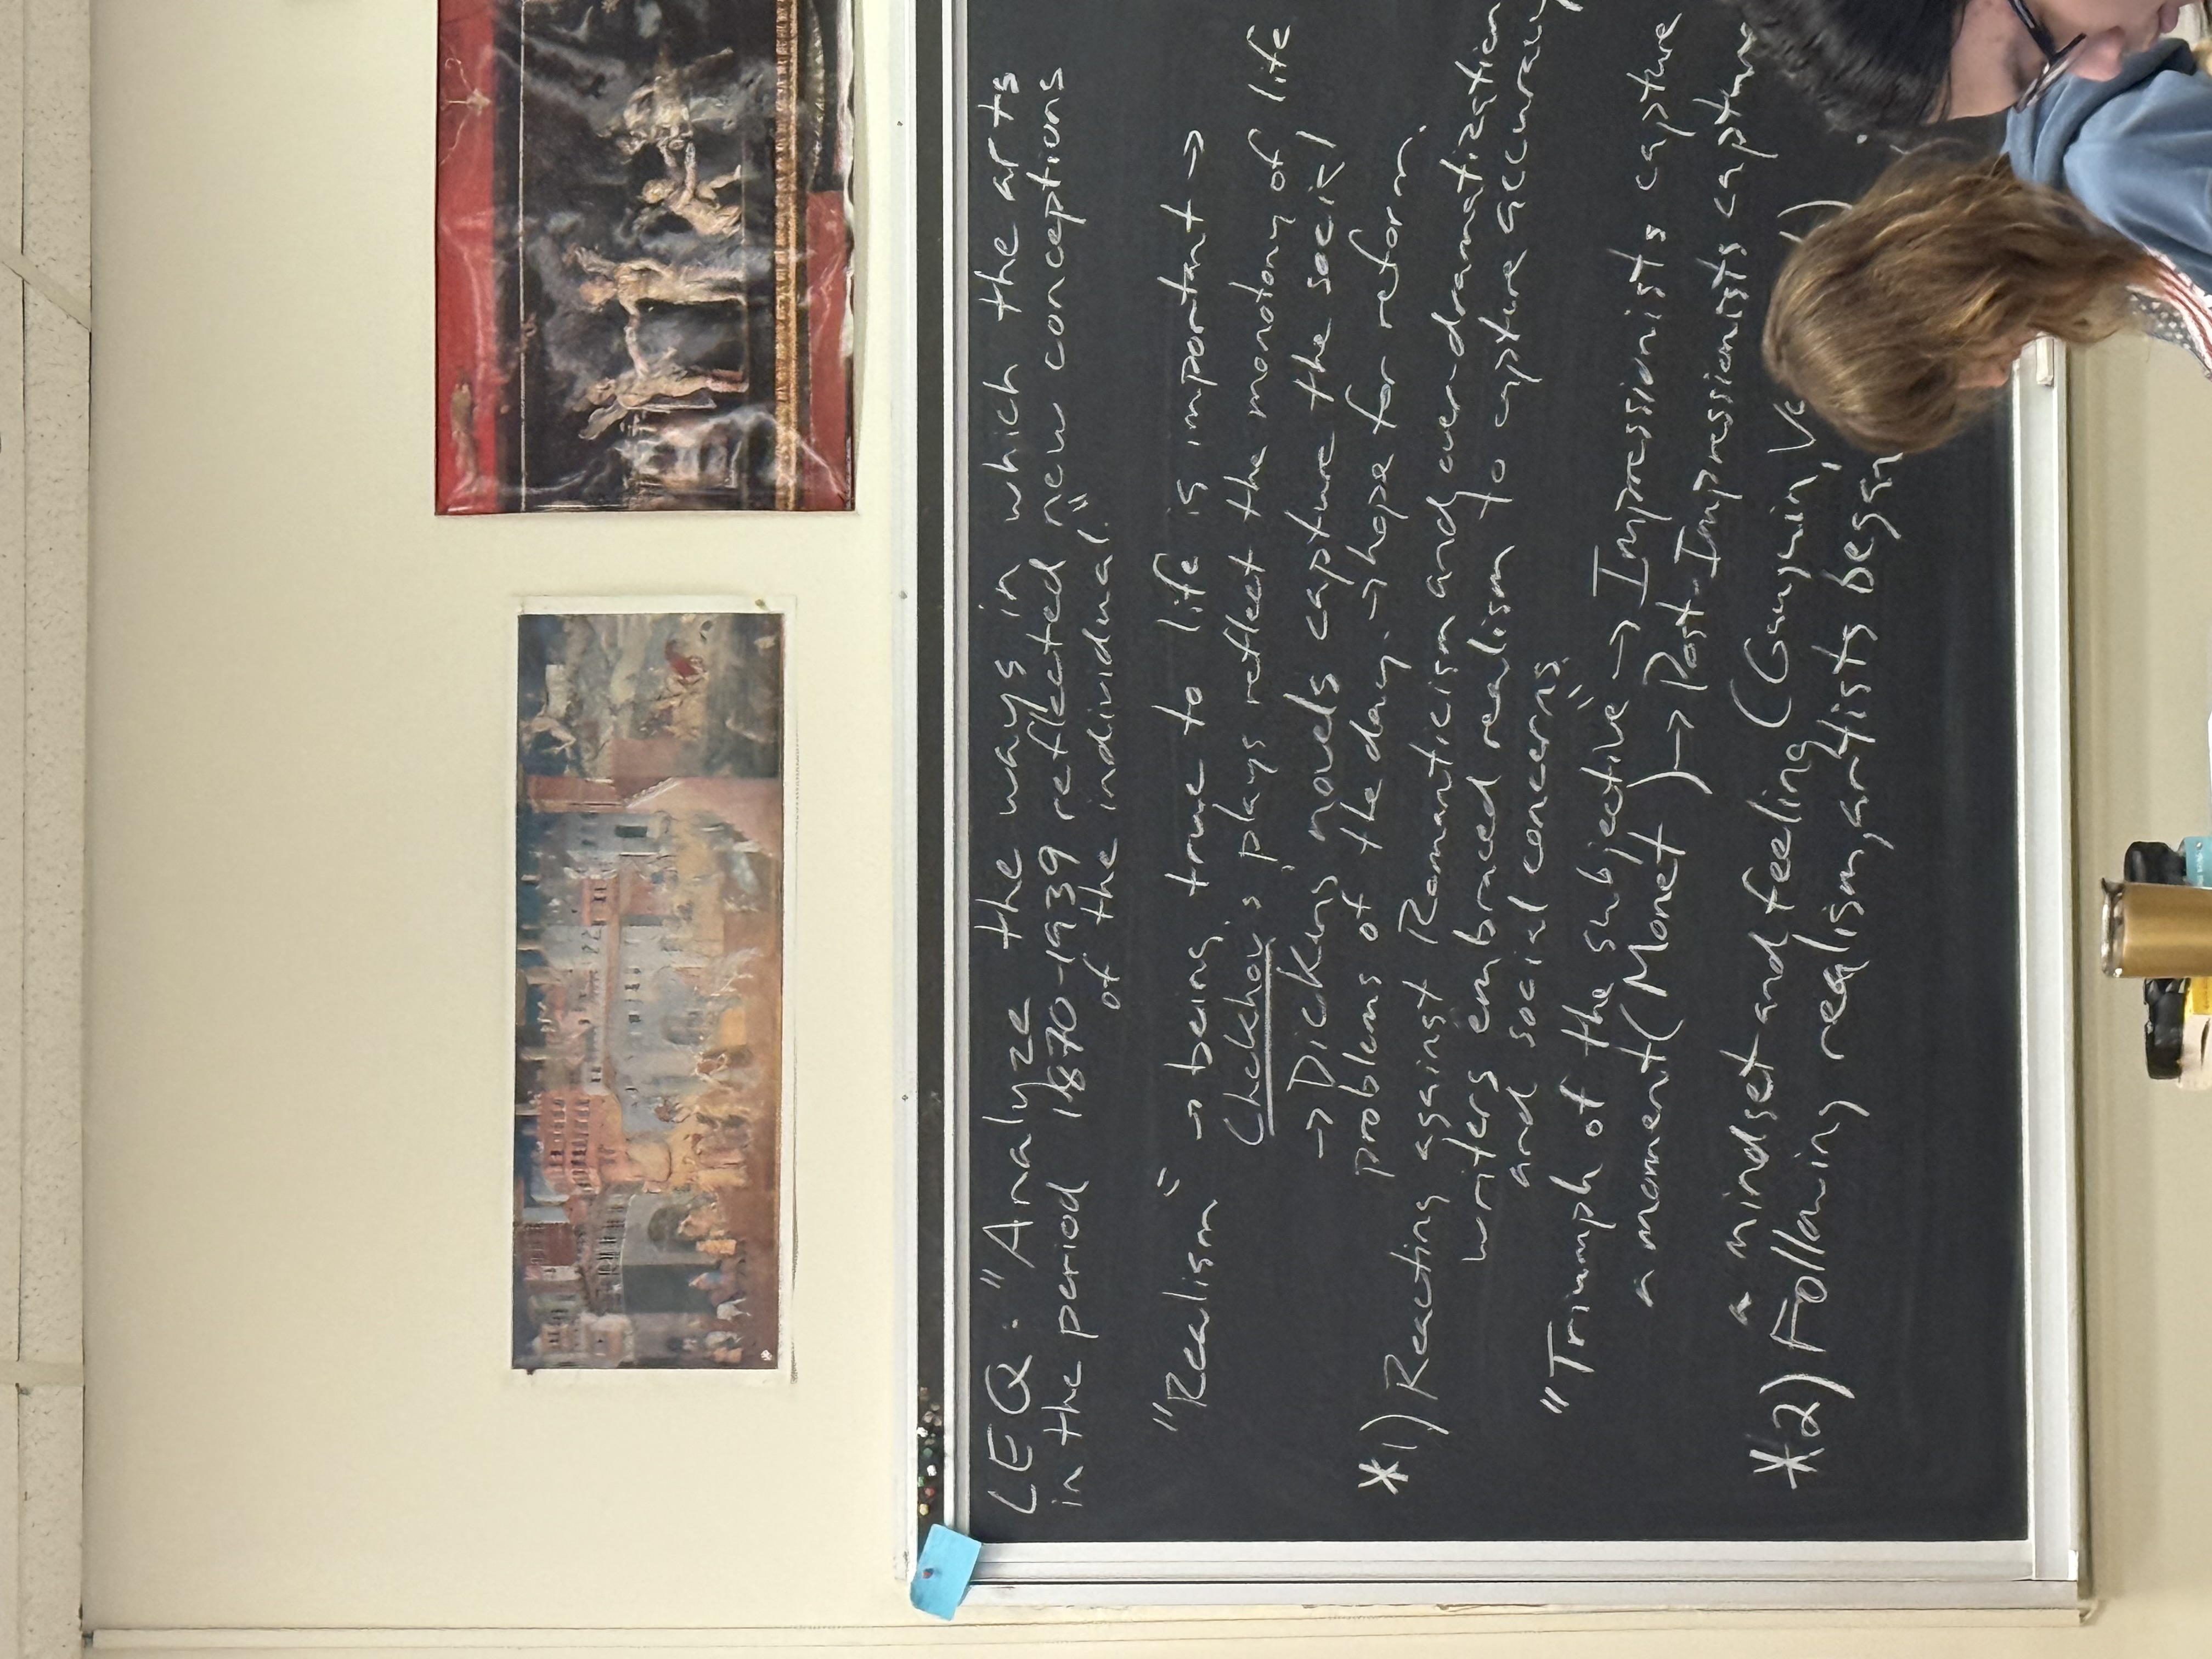 LEQ: "Analyze the ways in which the arts
in the period 1870-1939 reflected new conceptions
of the individual."
"Realism" → being true to life is important →
Chekhov's plays reflect the monotony of life
→ Dickens' novels capture the social
problems of the day. → hope for reform.
*1) Reacting against Romanticism and over-dramatization
writers embraced realism to capture accuracy
and social concerns.
"Triumph of the subjective" → Impressionists capture
a moment (Monet) → Post-Impressionists capture
a mindset and feeling (Gauguin, )
*2) Following realism, artists began